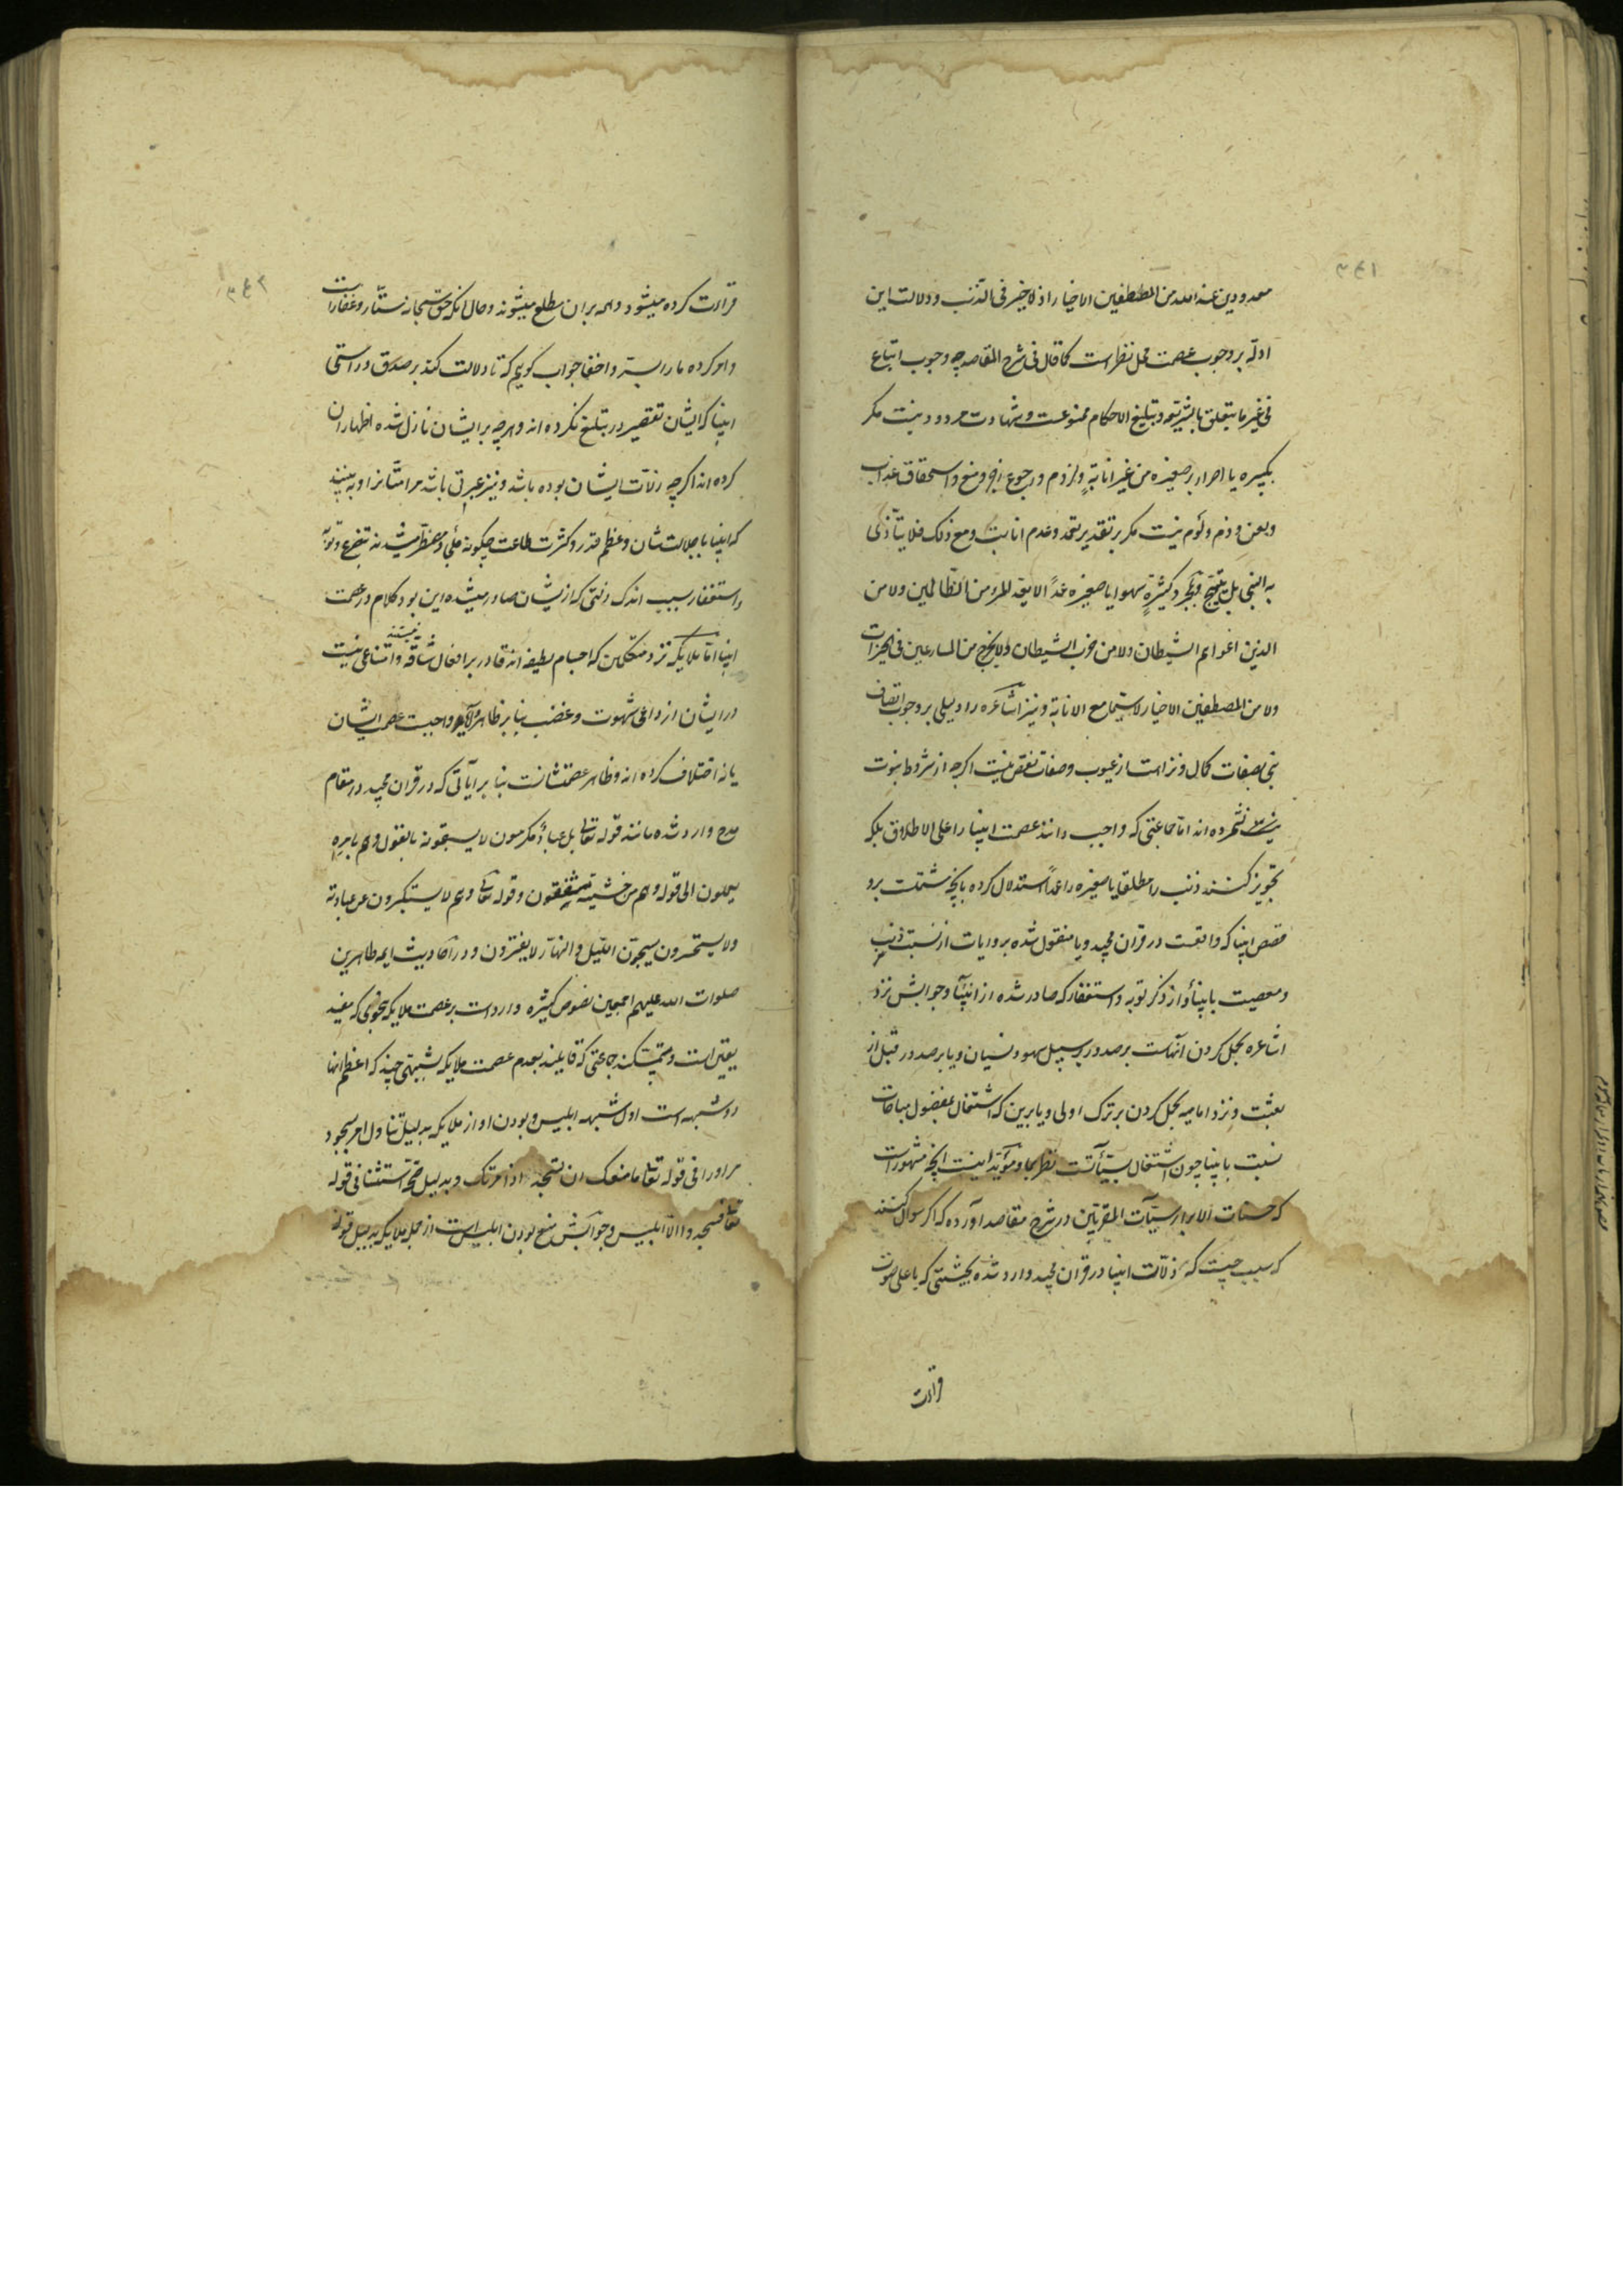 ٣٤١
معدودین عند الله من المصطفین الاخیار اذ لا خیر فی الذنب و دلالت این
ادله بر وجوب عصمت محل نظر است کما قال فی شرح المقاصد چه وجوب اتباع
فی غیر ما یتعلق بالشریعة و تبلیغ الاحکام ممنوعست و شهادت مردود نیست مکر
بکبیره یا اصرار بر صغیره من غیر انابة و لزوم و رجوع زجر و منع و استحقاق عذاب
و لعن و ذم و لوم نیست مکر بر تقدیر تعمد و عدم انابت و مع ذلک فلا یتأذی
به النبی بل یبتهج و بمجرد کبیرة سهوا یا صغیره عمدًا لا یعد المرء من الظالمین ولا من
الذین اغواهم الشیطان ولا من حزب الشیطان ولا یخرج من المسارعین فی الخیرات
ولا من المصطفین الاخیار لا سیما مع الانابة و نیز اشاعره را دلیلی بر وجوب اتصاف
نبی بصفات کمال و نزاهت از عیوب و صفات نقص نیست اکرچه از شروط نبوت
شمرده اند اما جماعتی که واجب دانند عصمت انبیا را علی الاطلاق بلکه
تجویز کنند ذنب را مطلقا یا صغیره را عمداً استدلال کرده بانچه مشتملست برو
قصص انبیا که واقعست در قران مجید و یا منقول شده بروایات از نسبت ذنب
و معصیت بانبیا و از ذکر توبه و استغفار که صادر شده از انبیا و جوابش نزد
اشاعره بحمل کردن آنهاست بر صدور بر سبیل سهو و نسیان و یا بر صدور قبل از
بعثت و نزد امامیه بحمل کردن بر ترک اولی و یا برین که اشتغال بفضول مباحات
نسبت بانبیا چون اشتغال بسیّآتست نظر بما و مؤید اینست انچه مشهور است
که حسنات الابرار سیّآت المقربین در شرح مقاصد آورده که اکر سوال کنند
که سبب چیست که زلّات انبیا در قران مجید وارد شده بحیثیتی که باعلی صوت
قراءت
٣٤٢
قراءت کرده میشود و همه بر ان مطلع میشوند و حال انکه حق سبحانه ستّار و غفار است
و امر کرده ما را بستر و اخفا جواب کویم که تا دلالت کند بر صدق و راستی
انبیا که ایشان تقصیر در تبلیغ نکرده اند و هرچه بر ایشان نازل شده اظهار ان
کرده اند اکرچه زلّات ایشان بوده باشد و نیز عبرتی باشد مر امتانرا و به بینند
که انبیا با جلالت شان و عظم قدر و کثرت طاعت چکونه ملجأ و مضطر میشدند بتضرع و توبه
و استغفار بسبب اندک زلتی که از یشان صادر میشده این بود کلام در عصمت
انبیا اما ملایکه نزد متکلمین که اجسام لطیفه اند قادر بر افعال شاقه نیستند و امتناعی نیست
در ایشان از داعی شهوت و غضب بنا بر ظاهر واجبست عصمت ایشان
یا نه اختلاف کرده اند و ظاهر عصمتشانست بنا بر آیاتی که در قران مجید در مقام
مدح وارد شده مانند قوله تعالی بل عبادٌ مکرمون لا یسبقونه بالقول و هم بامره
یعملون الی قوله و هم من خشیته مشفقون و قوله تعالی و هم لا یستکبرون عن عبادته
ولا یستحسرون یسبحون اللیل و النهار لا یفترون و در احادیث ایمه طاهرین
صلوات الله علیهم اجمعین نصوص کثیره وارد است بر عصمت ملایکه بنحوی که مفید
یقین است و متمسکند جماعتی که قایلند بعدم عصمت ملایکه بشبهتی چند که اعظم انها
دو شبهه است اول شبهه ابلیس و بودن او از ملایکه بدلیل تناول امر بسجود
مر او را فی قوله تعالی ما منعک ان تسجد اذ امرتک و بدلیل صحّة استثنا فی قوله
تعالی فسجدوا الّا ابلیس و جوابش منع بودن ابلیس است از جمله ملایکه بدلیل قوله